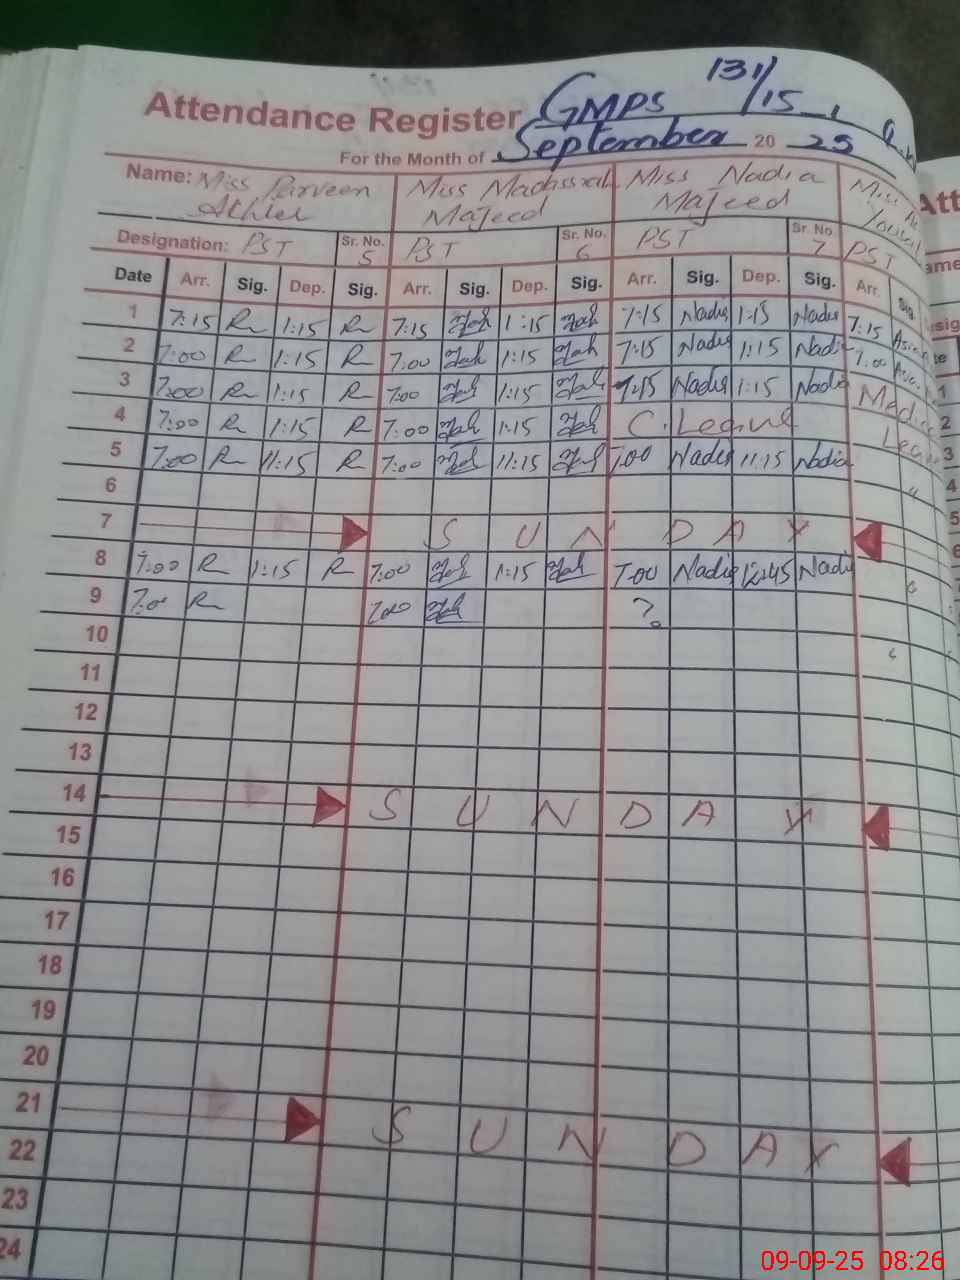 Attendance Register GMPS 131/15-L
For the Month of September 20 25
Name: Miss Parveen Miss Madissah Miss Nadia
Majeed Majeed
Designation: PST Sr. No. 5 PST Sr. No. 6 PST Sr. No. 7 PST
Date Arr. Sig. Dep. Sig. Arr. Sig. Dep. Sig. Arr. Sig. Dep. Sig. Arr. Sig.
1 7:15 R 1:15 R 7:15 1:15 7:15 Nadia 1:15 Nadia 7:15
2 7:00 R 1:15 R 7:00 1:15 7:15 Nadia 1:15 Nadia 7:00
3 7:00 R 1:15 R 7:00 1:15 7:15 Nadia 1:15 Nadia
4 7:00 R 1:15 R 7:00 1:15 C. Leave
5 7:00 R 11:15 R 7:00 11:15 7:00 Nadia 11:15 Nadia
6
7 SUNDAY
8 7:00 R 1:15 R 7:00 1:15 7:00 Nadia 12:45 Nadia
9 7:00 R 7:00 ?
10
11
12
13
14 SUNDAY
15
16
17
18
19
20
21 SUNDAY
22
23
24
Att
1
2
3
4
5
6
09-09-25 08:26